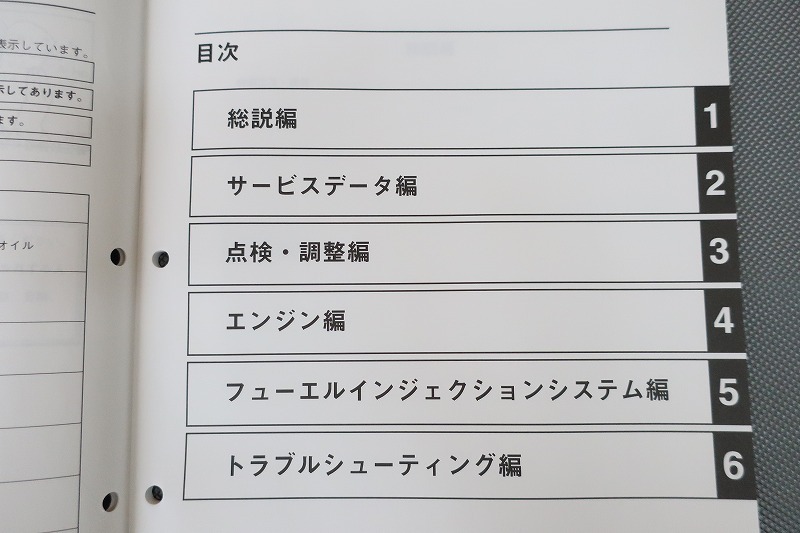 表示しています。
示してあります。
ます。
オイル
目次
総説編 1
サービスデータ編 2
点検・調整編 3
エンジン編 4
フューエルインジェクションシステム編 5
トラブルシューティング編 6